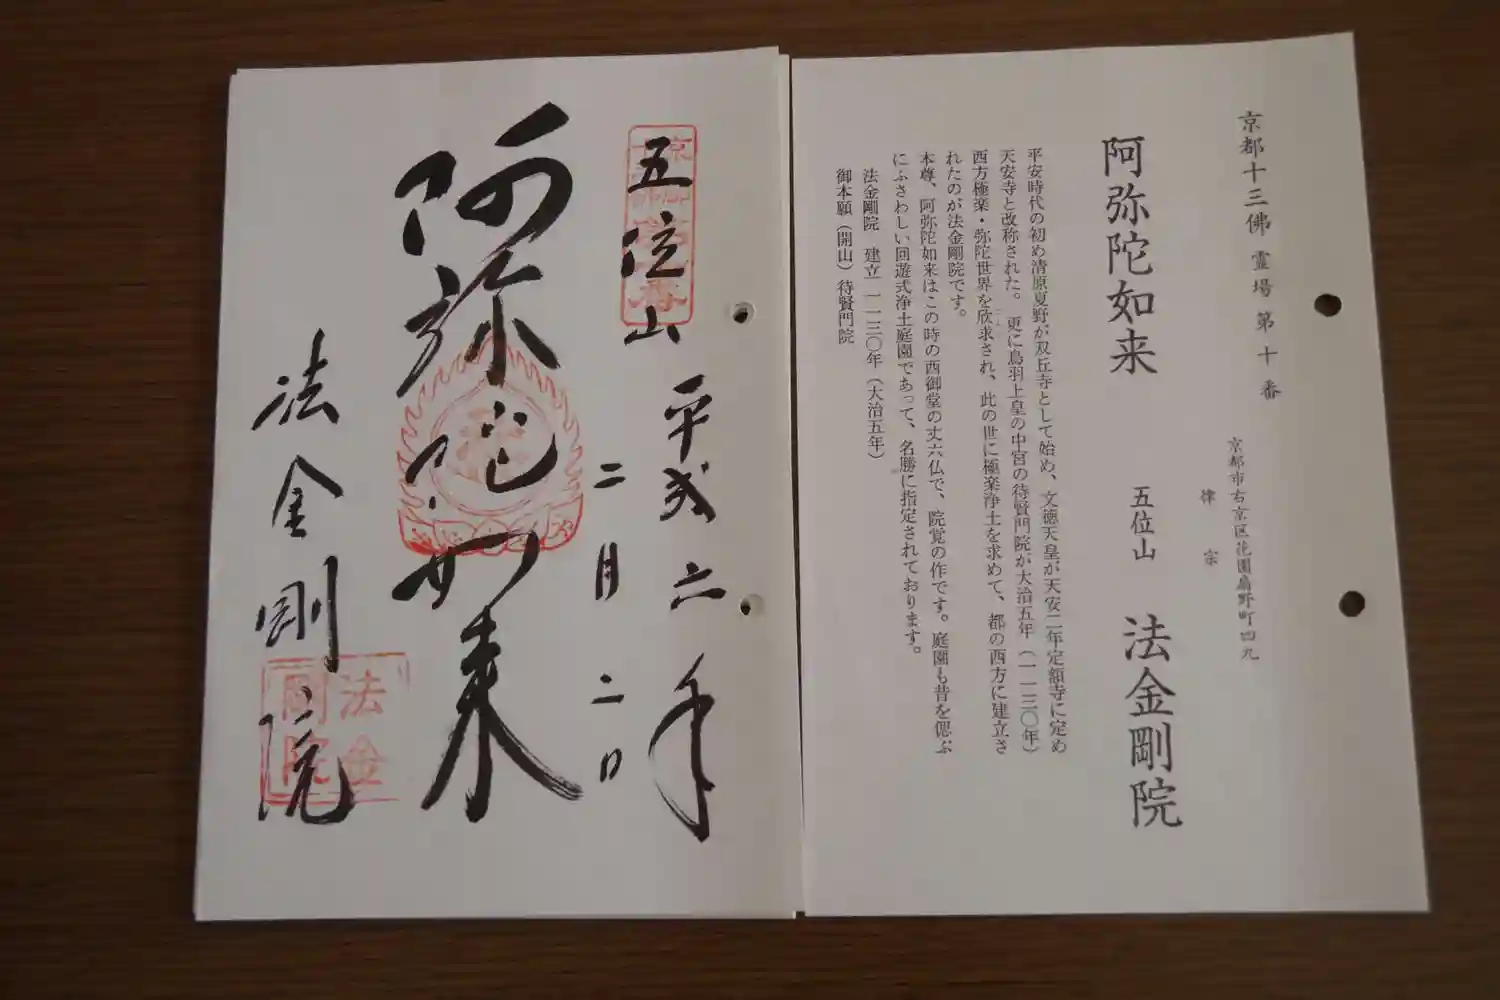 京都十三佛霊場第十番
京都市右京区花園扇野町四九
律宗
阿弥陀如来
五位山 法金剛院
平安時代の初め清原夏野が双丘寺として始め、文徳天皇が天安二年定額寺に定め
天安寺と改称された。更に鳥羽上皇の中宮の待賢門院が大治五年（一一三〇年）
西方極楽・弥陀世界を欣求され、此の世に極楽浄土を求めて、都の西方に建立さ
れたのが法金剛院です。
本尊、阿弥陀如来はこの時の西御堂の丈六仏で、院覚の作です。庭園も昔を偲ぶ
にふさわしい回遊式浄土庭園であって、名勝に指定されております。
法金剛院 建立 一一三〇年（大治五年）
御本願（開山）待賢門院
五位山
平成二年
二月二日
阿弥陀如来
法金剛院
法金
剛院